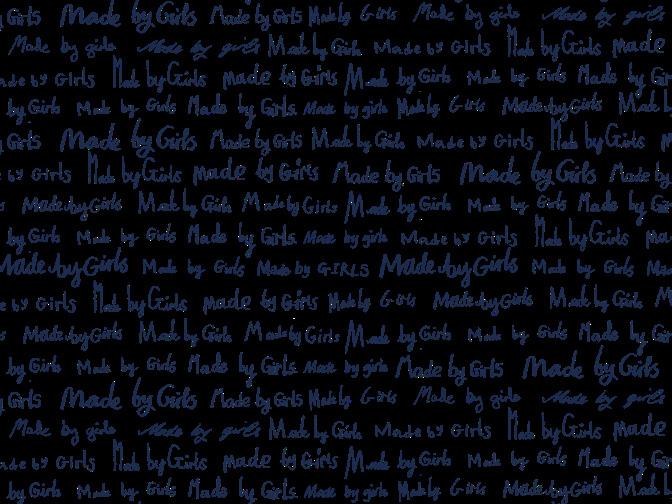 Girls Made by Girls Made by Girls Made by Girls Made by girls Made by girls
Made by girls Made by girls Made by Girls Made by Girls Made by Girls Made
Made by Girls Made by Girls made by Girls Made by Girls Made by Girls Made by Girls
by Girls Made by Girls Made by Girls Made by girls Made by Girls Made by Girls Made by
Girls Made by Girls Made by Girls Made by Girls Made by Girls Made by Girls
by Girls Made by Girls made by Girls Made by Girls Made by Girls Made by
Made by Girls Made by Girls Made by Girls Made by Girls Made by Girls Made by Girls
by Girls Made by Girls Made by Girls Made by girls Made by Girls Made by Girls made
Made by Girls Made by Girls Made by GIRLS Made by Girls Made by Girls Made
by Girls Made by Girls made by Girls Made by Girls Made by Girls Made by Girls
Made by Girls Made by Girls Made by Girls Made by Girls Made by Girls Made by Girls
by Girls Made by Girls Made by Girls Made by girls Made by Girls Made by Girls
Girls Made by Girls Made by Girls Made by Girls Made by girls Made by girls
Made by girls Made by girls Made by Girls Made by Girls Made by Girls Made
Made by Girls Made by Girls made by Girls Made by Girls Made by Girls Made by Girls
by Girls Made by Girls Made by Girls Made by girls Made by Girls Made by Girls Made by